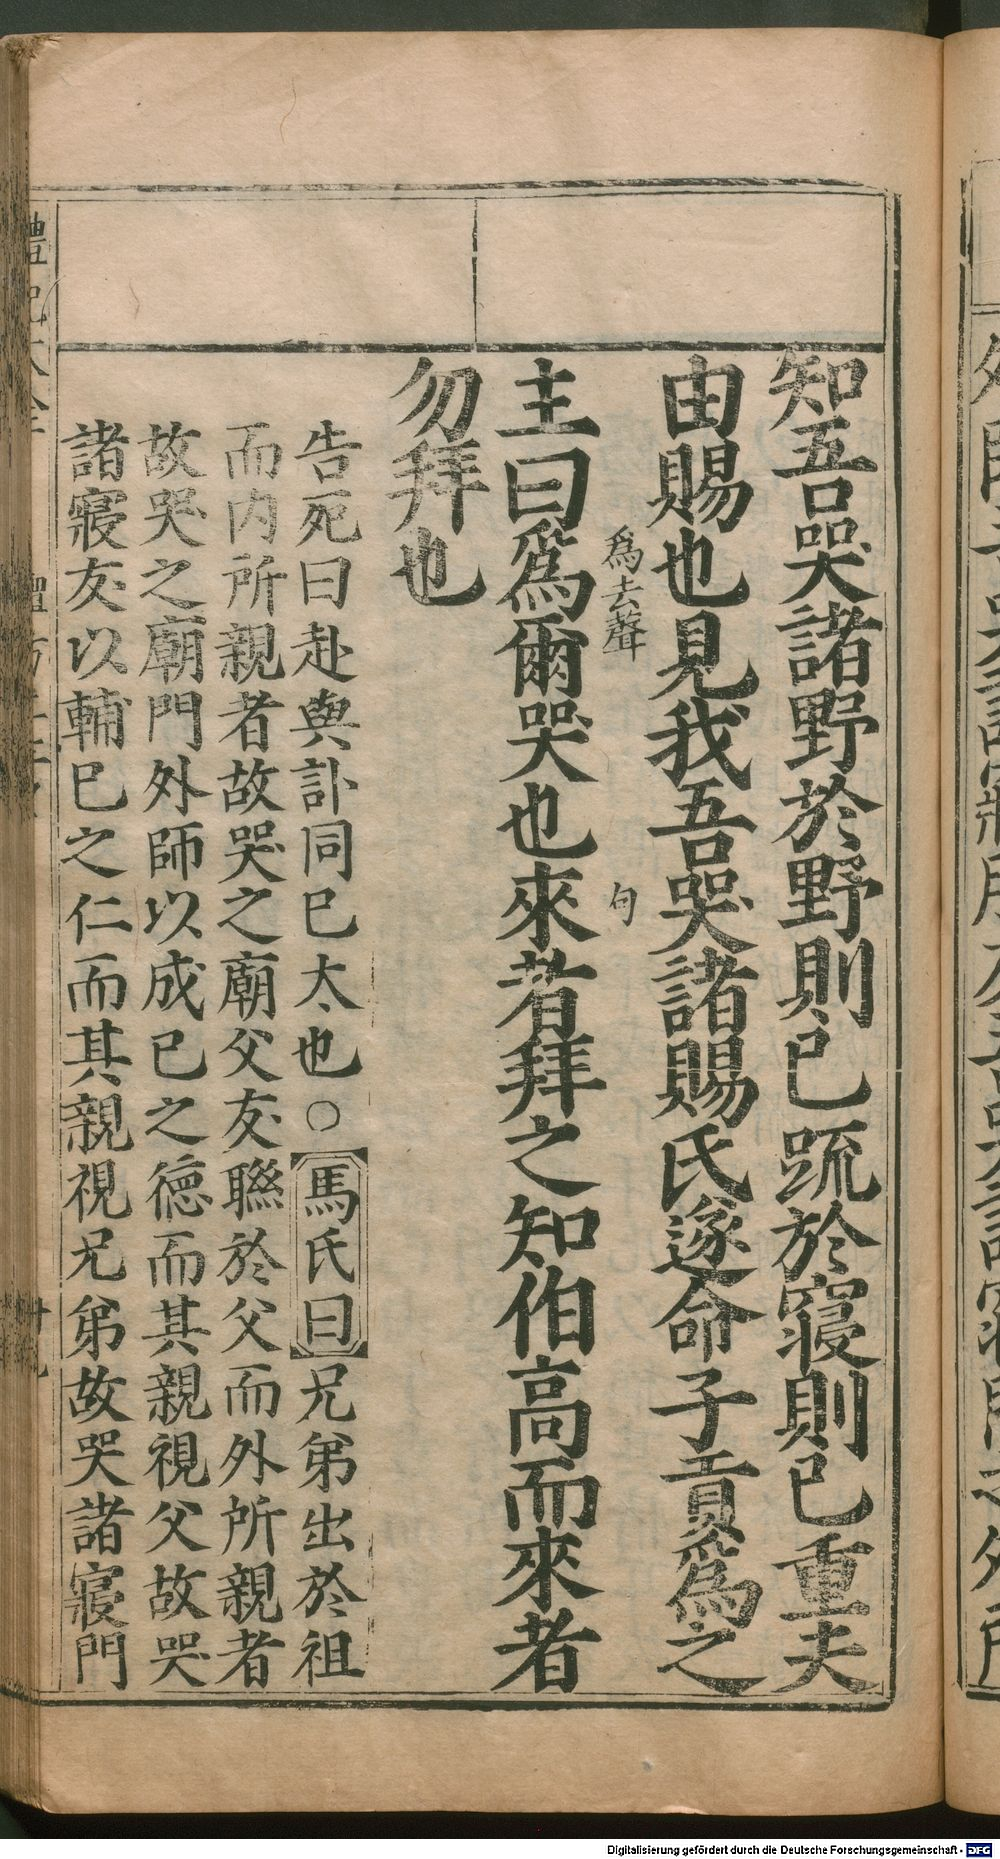 知吾哭諸野於野則已䟽於寢則已重夫
由賜也見我吾哭諸賜氏遂命子貢爲之
爲去聲
句
主曰爲爾哭也來者拜之知伯高而來者
勿拜也
告死曰赴與訃同已太也○馬氏曰兄弟出於祖
而内所親者故哭之廟父友聯於父而外所親者
故哭之廟門外師以成已之德而其親視父故哭
諸寢友以輔已之仁而其親視兄弟故哭諸寢門
Digitalisierung gefördert durch die Deutsche Forschungsgemeinschaft - DFG